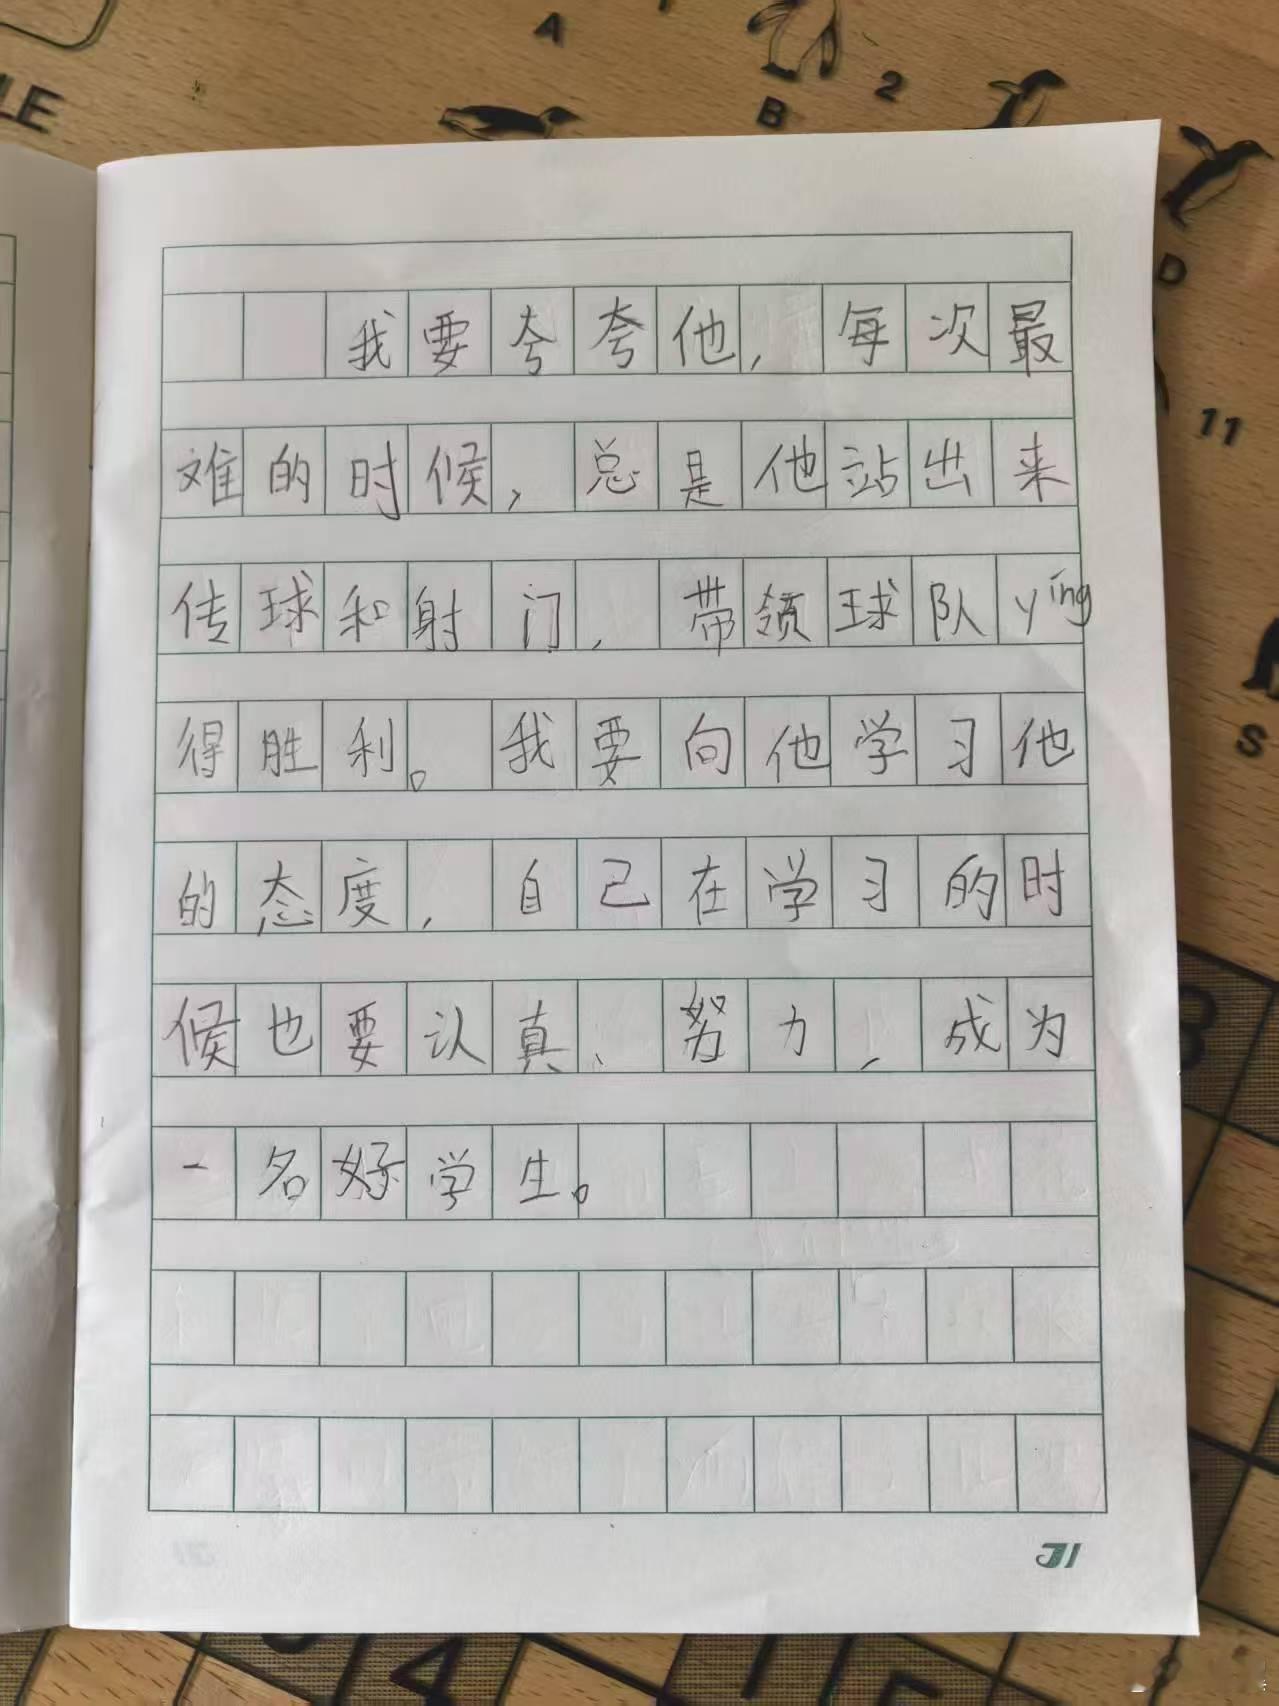 LE
A
B
2
D
11
S
我要夸夸他，每次最
难的时候，总是他站出来
传球和射门，带领球队yíng
得胜利。我要向他学习他
的态度，自己在学习的时
候也要认真、努力，成为
一名好学生。
31
4